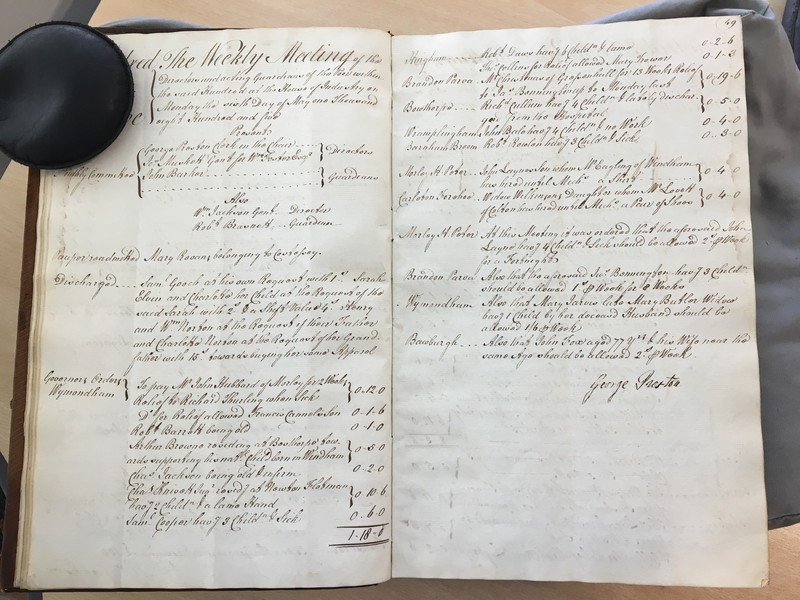 The Weekly Meeting of the
Directors and acting Guardians of the Poor within
the said Hundred at the House of Industry on
Monday the sixth Day of May one Thousand
eight Hundred and five
Present
George Preston Clerk in the Chair
Wm Foster Esqr
Directors
Weekly Committee
John Barker
Guardians
Also
Wm Jackson Gent. Director
Robt Brasnett Guardian
Pauper readmitted Mary Rowan belonging to Costessey
Discharged Saml Gooch at his own Request with 1s Sarah
Elvin and Charlotte her Child at the Request of the
said Sarah with 2s & a Shift Value 4s Henry
and Wm Norton at the Request of their Father
and Charlotte Norton at the Request of her Grand
father with 15s towards buying her some Apparel
Governors Orders
Wymondham
To pay Mr John Hubbard of Morley for 12 Weeks
Relief to Richard Thurling when Sick
0-12-0
Do for Relief allowed Francis Cannels Son 0-1-6
Robt Barrett being old 0-1-0
Arthur Browne residing at Bowthorpe tow
ards supporting his Child born in Windham
0-5-0
Chas Jackson being old & infirm 0-2-0
residg at Newton Flotman
havg 2 Childn & a lame Hand
0-10-6
Saml Cooper havg 3 Childn & Sick 0-6-0
1-18-0
49
Hingham Robt Daws havg 6 Childn & lame 0-2-6
Thos Cullens for Relief allowed Mary Trower 0-1-3
Brandon Parva Mr Christmas of for 13 Weeks Relief
to Jas Bunnington to Monday last
0-19-6
Bowthorpe Richd Cullum havg 4 Childn & lately dischar
ged from the Hospital
0-5-0
Wramplingham John Bale havg 4 Childn & no Work 0-4-0
Barnham Broom Robt havg 3 Childn & Sick 0-3-0
Morley St Peter John Laynes Son whom Mr Eagling of Windham
has hired until Michs a Shirt
0-4-0
Carleton Forehoe Widow Wilkinsons Daughter whom Mr Lovett
of Colton has hired until Michs a Pair of Shoes
0-4-0
Morley St Peter At this Meeting it was ordered that the aforesaid John
Layne havg 4 Childn & Sick should be allowed 2s pr Week
for a Fortnight
Brandon Parva Also that the aforesaid Jas Bunnington havg 3 Childn
should be allowed 1s pr Week for Weeks
Wymondham Also that Mary Jarvis late Mary Butler Widow
havg 1 Child by her deceased Husband should be
allowed 1/6 pr Week
Bawburgh Also that John Fox aged 77 Yrs & his Wife near the
same Age should be allowed 2s pr Week
George Preston